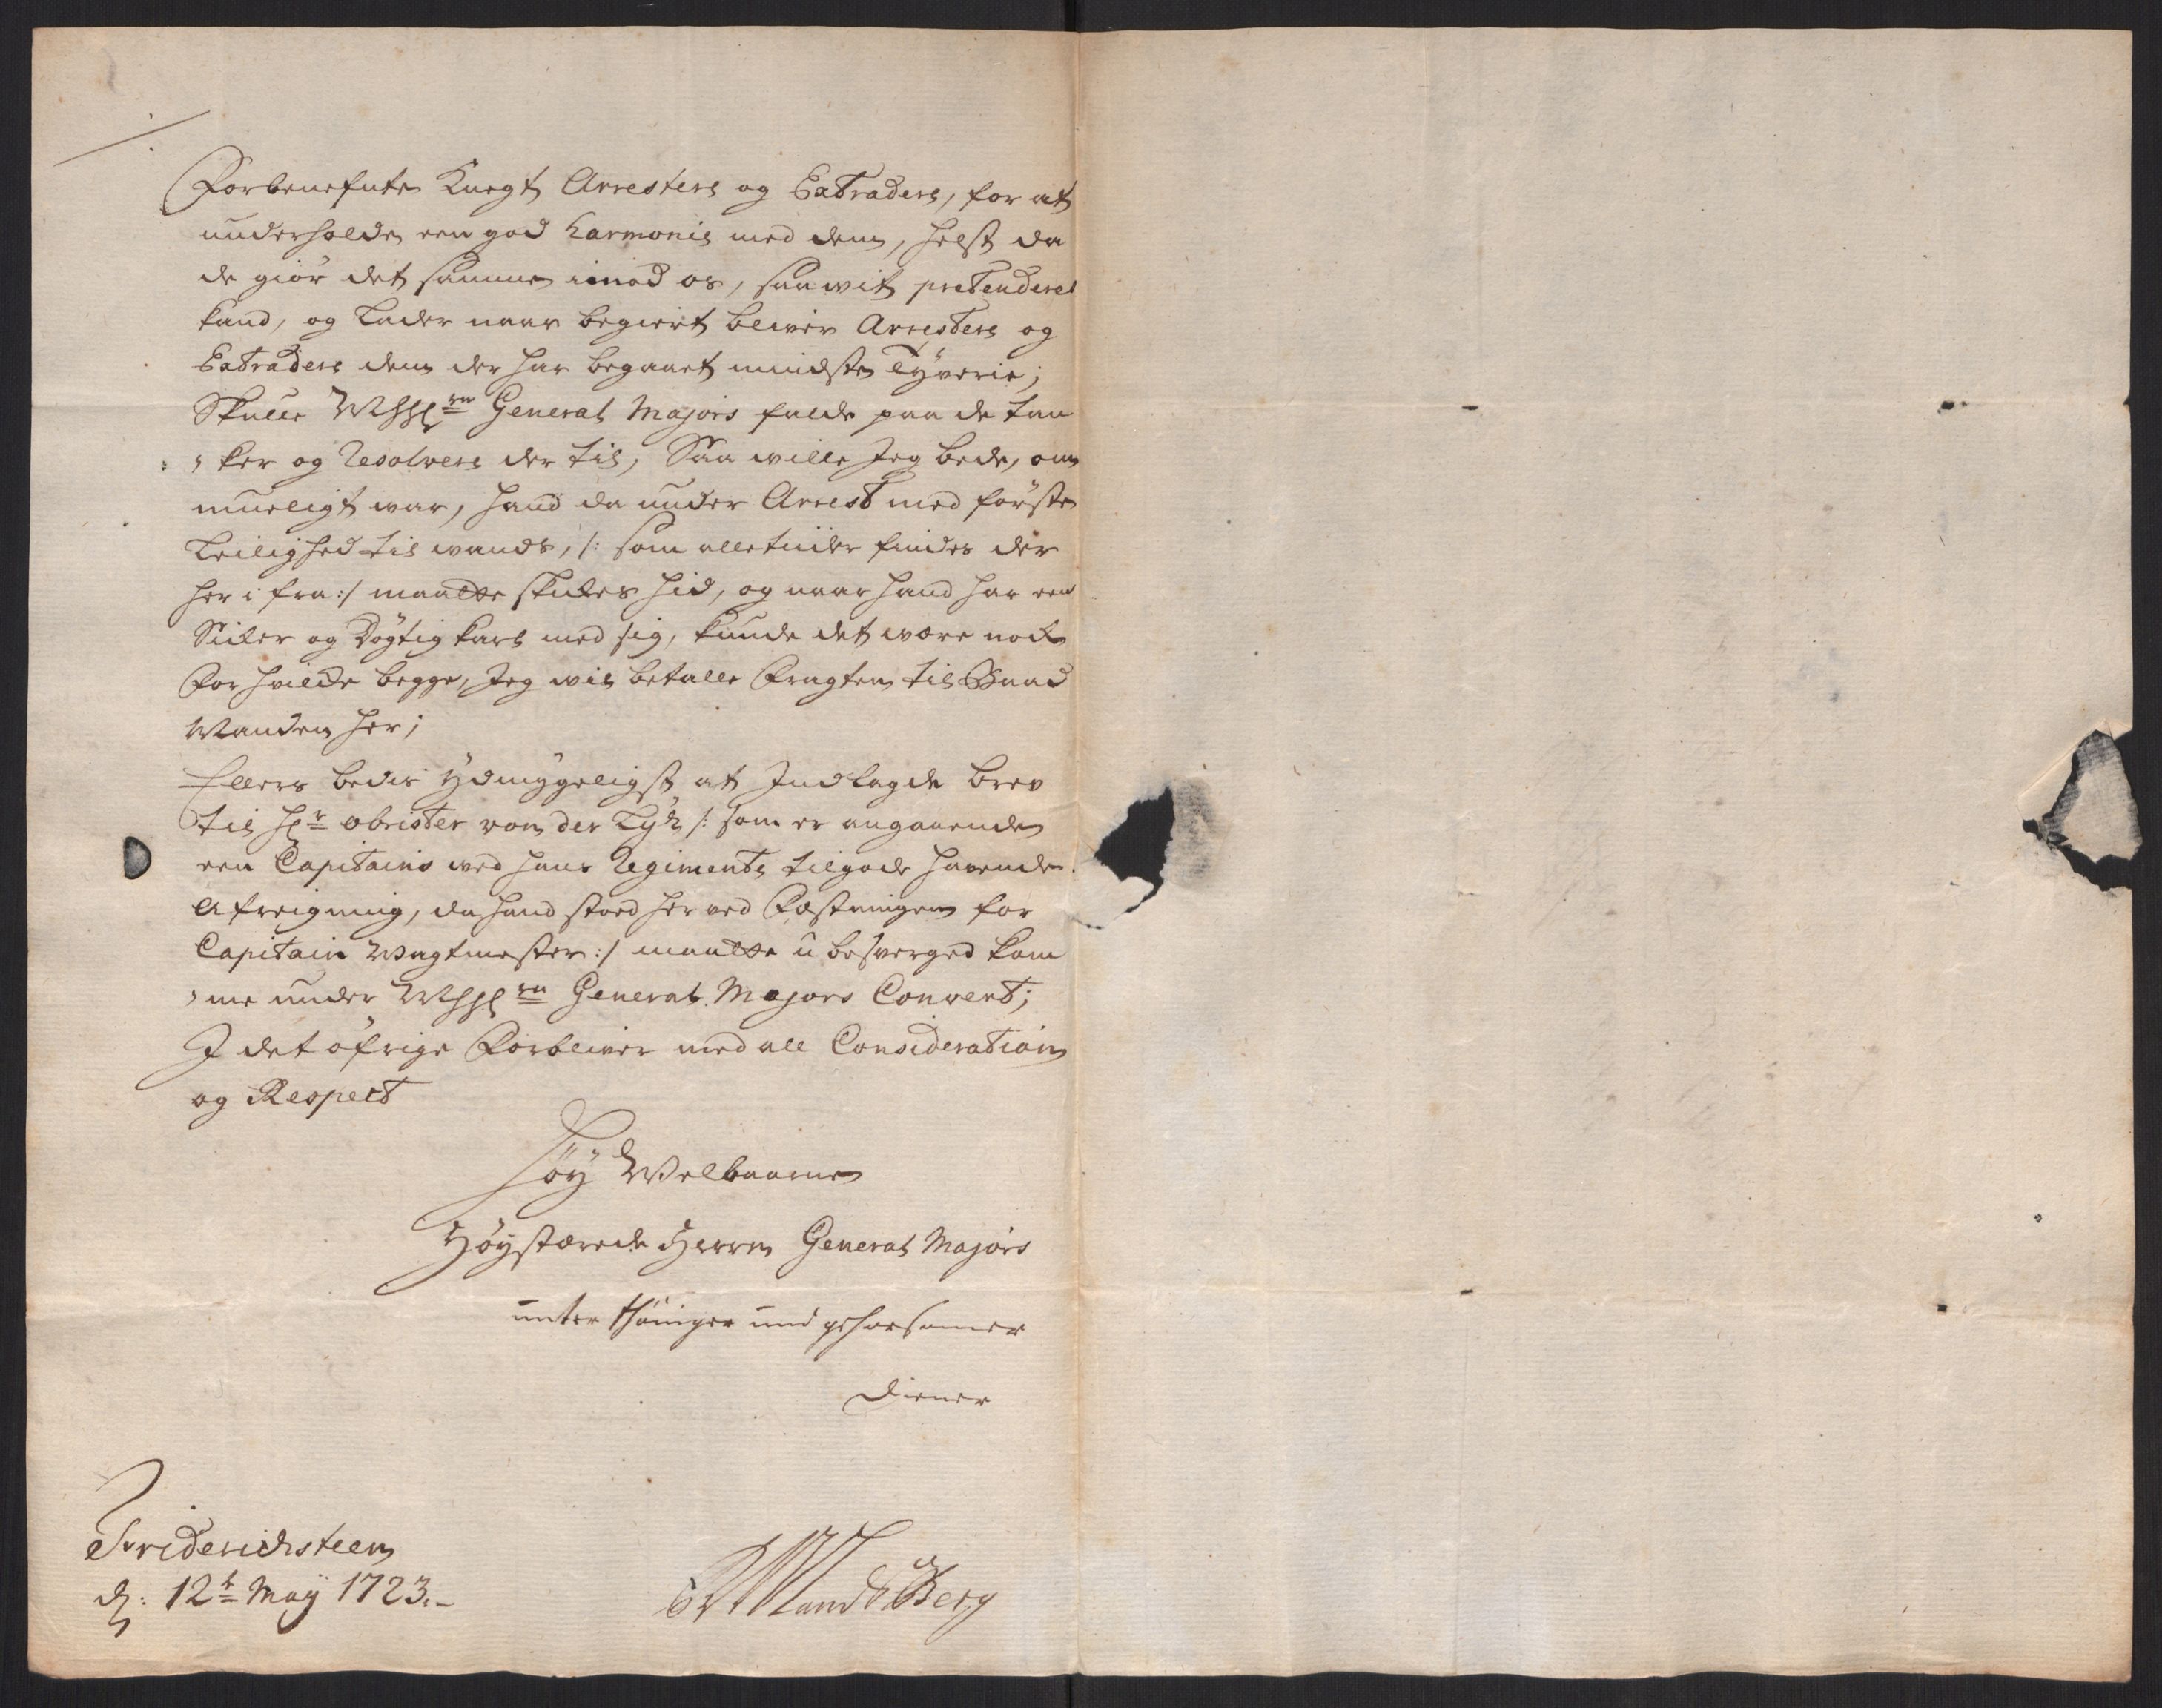 ·/·
Forbenefnte Knegt Arrestere og Extradere, for at
underholde een god Harmonie med dem, helst da
de giör det samme imod os, saawit prætenderes
kand, og Lader naar begiert bliver Arrestere og
Extradere dem der har begaaet mindste Tÿverie;
Skulle General Majors falde paa de tan
ker og Resolvere der til, Saa wille Jeg bede, om
mueligt war, hand da under Arrest med förste
Leilighed til wands, /: som alletiider findes der
her i fra :/ maatte skikes hid, og naar hand har een
Siiker og Dögtig karl med sig, kunde det wære nok
For hvilke begge, Jeg wil betalle Fragten til Baad
Manden her;
Ellers bedis ÿdmygeligst at Indlagde brev
til Hr obrister von der /: som er angaaende
een Capitains ved hans Regimente tilgode havende
Afreigning, da hand stoed her ved Fæstningen for
Capitain Wagtmester :/ maatte u besverged kom
me under General Majors Convert;
I det öfrige Forbliver med all Consideration
og Respect
Höÿ Welbaarne
Höÿstærede Herrn General Majors
unterthäniger und gehorsamer
Diener
Friderichsteen
d: 12t Maÿ 1723.
Landsberg